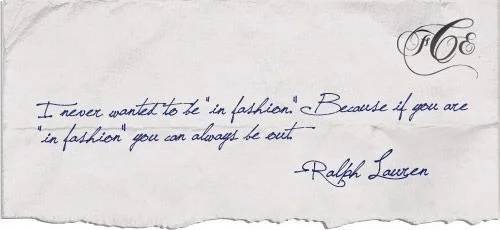 FCE
I never wanted to be "in fashion." Because if you are
"in fashion" you can always be out.
-Ralph Lauren